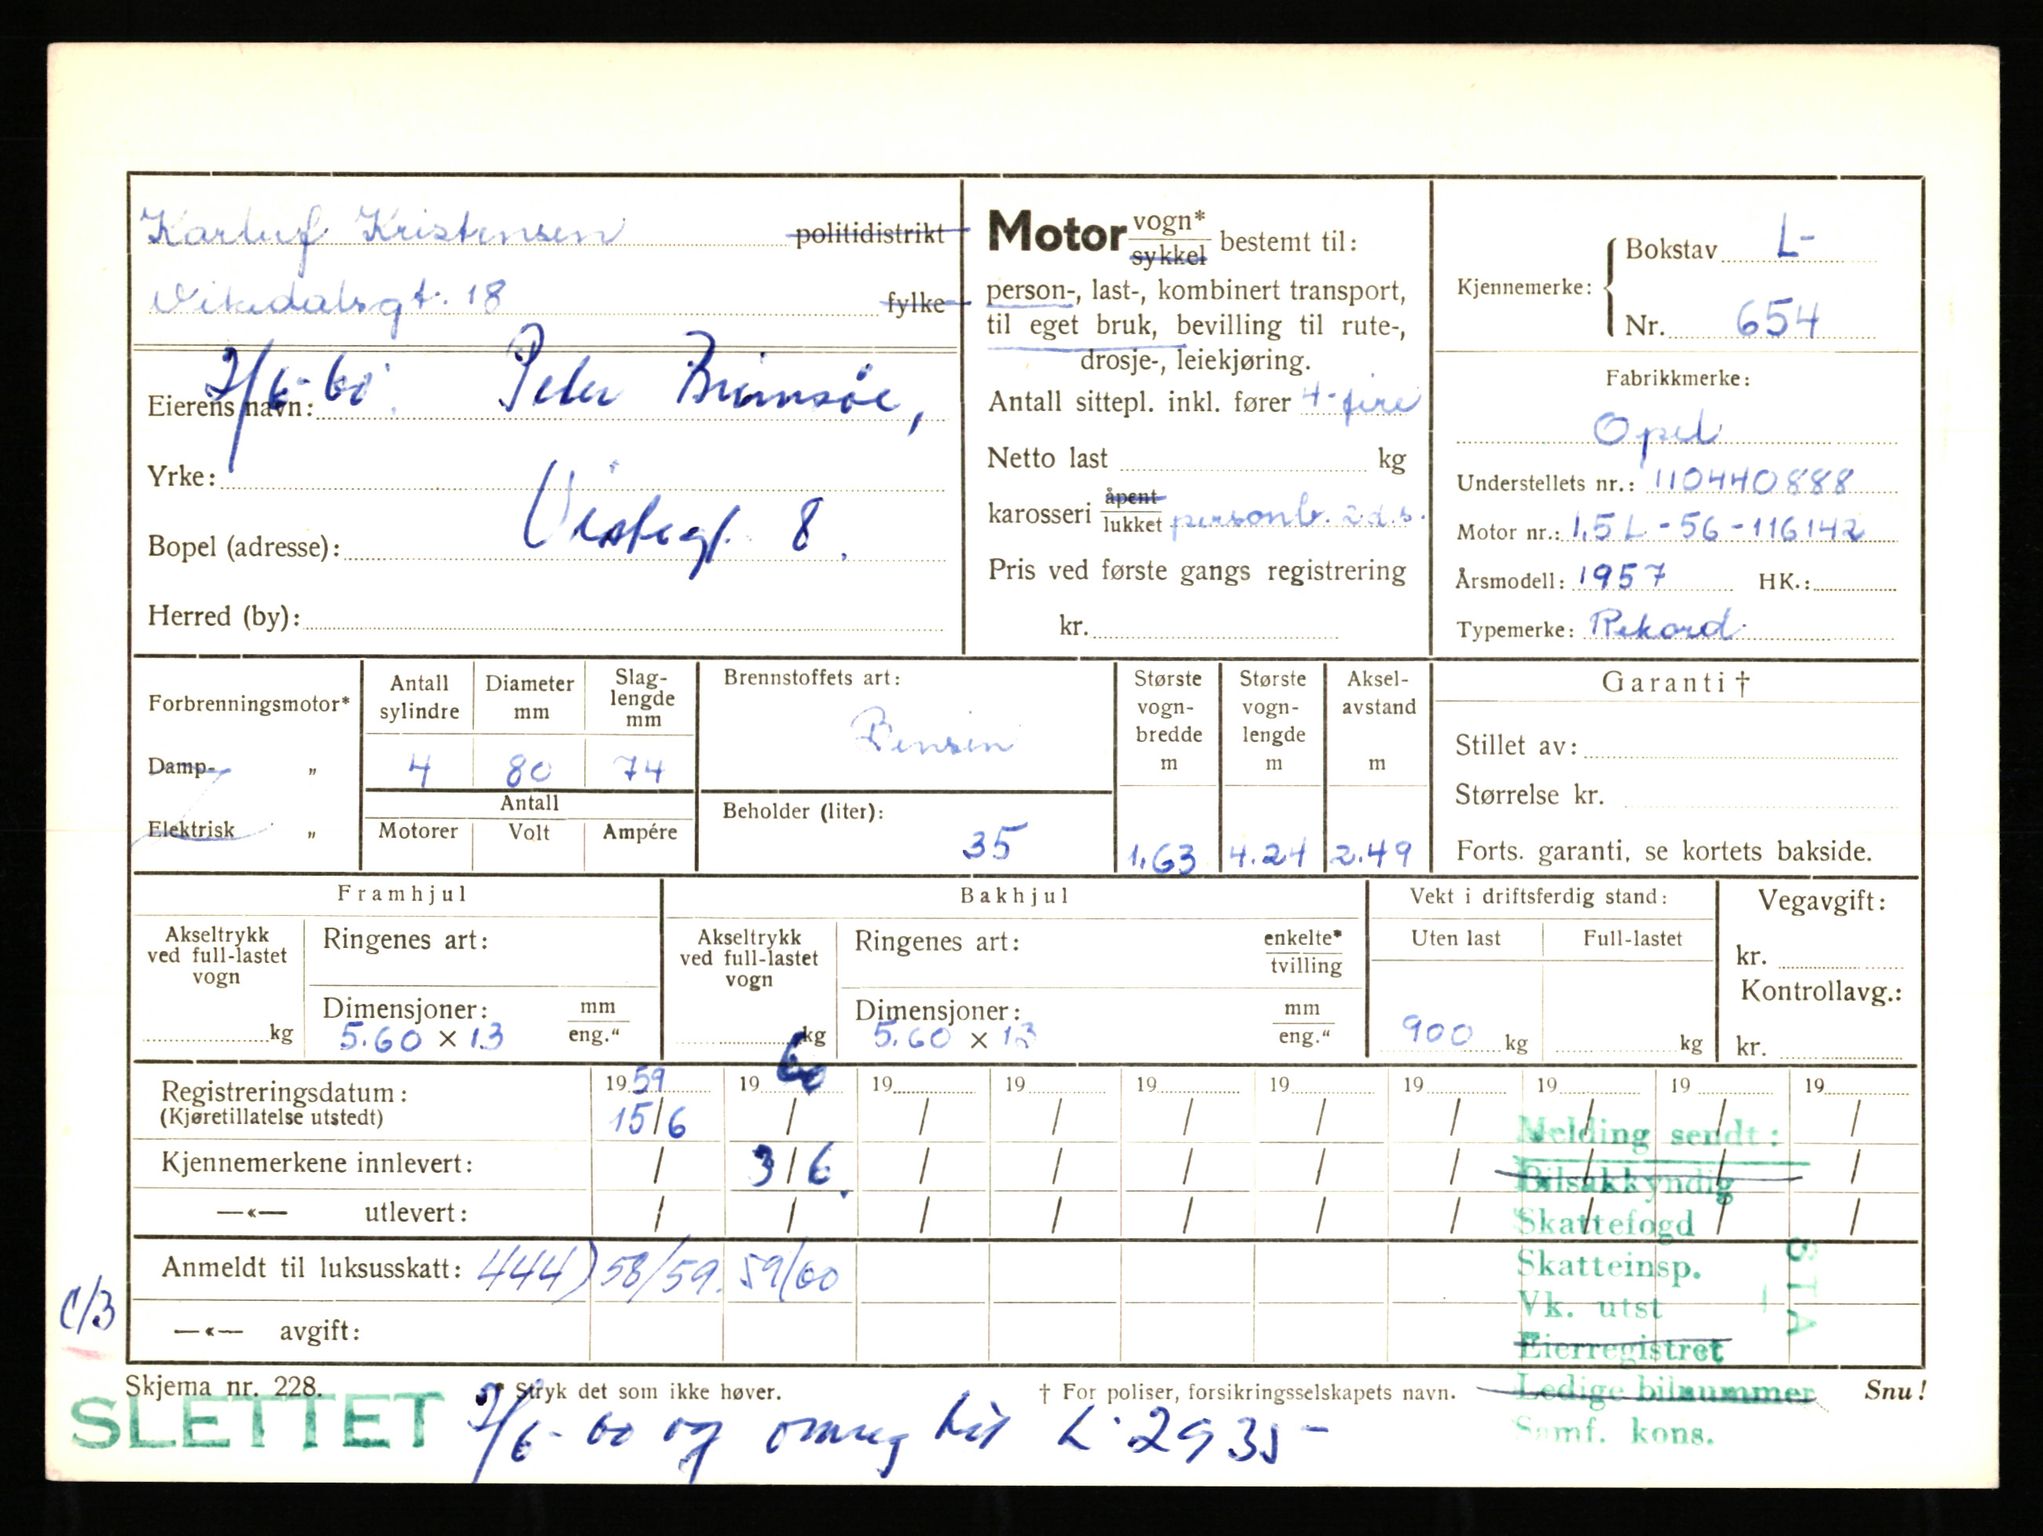 Karluf Kristensen politidistrikt
Vikedalsgt. 18 fylke
7/6-60. Peter Brimsøe,
Eierens navn:
Yrke:
Bopel (adresse): Vistegt. 8.
Herred (by):
Motor vogn* sykkel bestemt til:
person-, last-, kombinert transport,
til eget bruk, bevilling til rute-,
drosje-, leiekjøring.
Antall sittepl. inkl. fører 4-fire
Netto last kg
karosseri åpent lukket personb. 2d.s.
Pris ved første gangs registrering
kr.
Kjennemerke: Bokstav L-
Nr. 654
Fabrikkmerke:
Opel
Understellets nr.: 110440888
Motor nr.: 1,5 L-56-116142
Årsmodell: 1957 HK.:
Typemerke: Rekord
Forbrenningsmotor*
Damp- „
Elektrisk „
Antall sylindre
Diameter mm
Slag-lengde mm
4 80 74
Antall
Motorer Volt Ampére
Brennstoffets art:
Bensin
Beholder (liter):
35
Største vogn-bredde m
1.63
Største vogn-lengde m
4.24
Aksel-avstand m
2.49
Garanti †
Stillet av:
Størrelse kr.
Forts. garanti, se kortets bakside.
Framhjul
Akseltrykk ved full-lastet vogn
kg
Ringenes art:
Dimensjoner: mm eng."
5.60 x 13
Bakhjul
Akseltrykk ved full-lastet vogn
kg
Ringenes art: enkelte* tvilling
Dimensjoner: mm eng."
5.60 x 13
Vekt i driftsferdig stand:
Uten last Full-lastet
900 kg kg
Vegavgift:
kr.
Kontrollavg.:
kr.
Registreringsdatum: 1959 1960 19 19 19 19 19 19 19 19
(Kjøretillatelse utstedt) 15/6 / / / / / / / / /
Kjennemerkene innlevert: / 3/6. / / / / / / / /
—«— utlevert: / / / / / / / / / /
Anmeldt til luksusskatt: 444) 58/59. 59/60
—«— avgift:
C/3
Melding sendt:
Bilsakkyndig
Skattefogd
Skatteinsp.
Vk. utst
Eierregistret
Ledige bilnummer
Samf. kons.
Skjema nr. 228.
* Stryk det som ikke høver.
† For poliser, forsikringsselskapets navn.
Snu!
SLETTET 7/6-60 og omreg til L-2935-